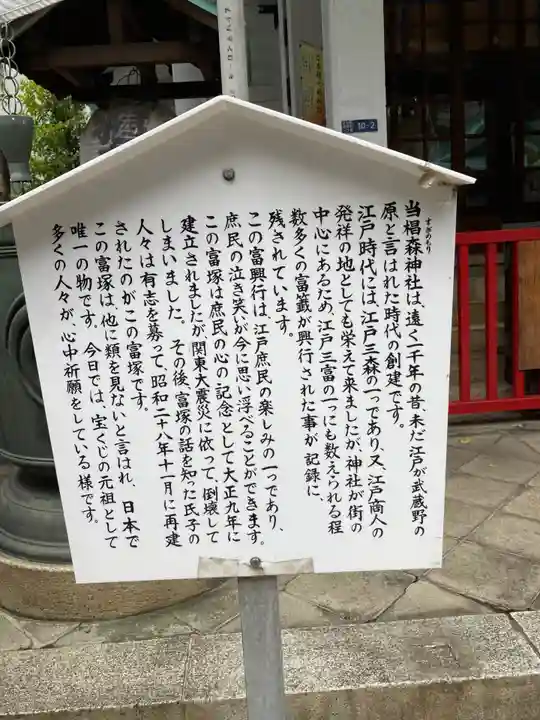 当椙森神社は、遠く一千年の昔、未だ江戸が武蔵野の
すぎのもり
原と言はれた時代の創建です。
江戸時代には、江戸三森の一つであり、又、江戸商人の
発祥の地としても栄えて来ましたが、神社が街の
中心にあるため、江戸三富の一つにも数えられる程
数多くの富籤が興行された事が記録に、
残されています。
この富興行は、江戸庶民の楽しみの一つであり、
庶民の泣き笑が今に思い浮べることができます。
この富塚は庶民の心の記念として大正九年に
建立されましたが関東大震災に依って、倒壊して
しまいました。その後、富塚の話を知った氏子の
人々は有志を募って、昭和二十八年十一月に再建
されたのがこの富塚です。
この富塚は、他に類を見ないと言はれ、日本で
唯一の物です。今日では、宝くじの元祖として
多くの人々が、心中祈願をしている様です。
10-2